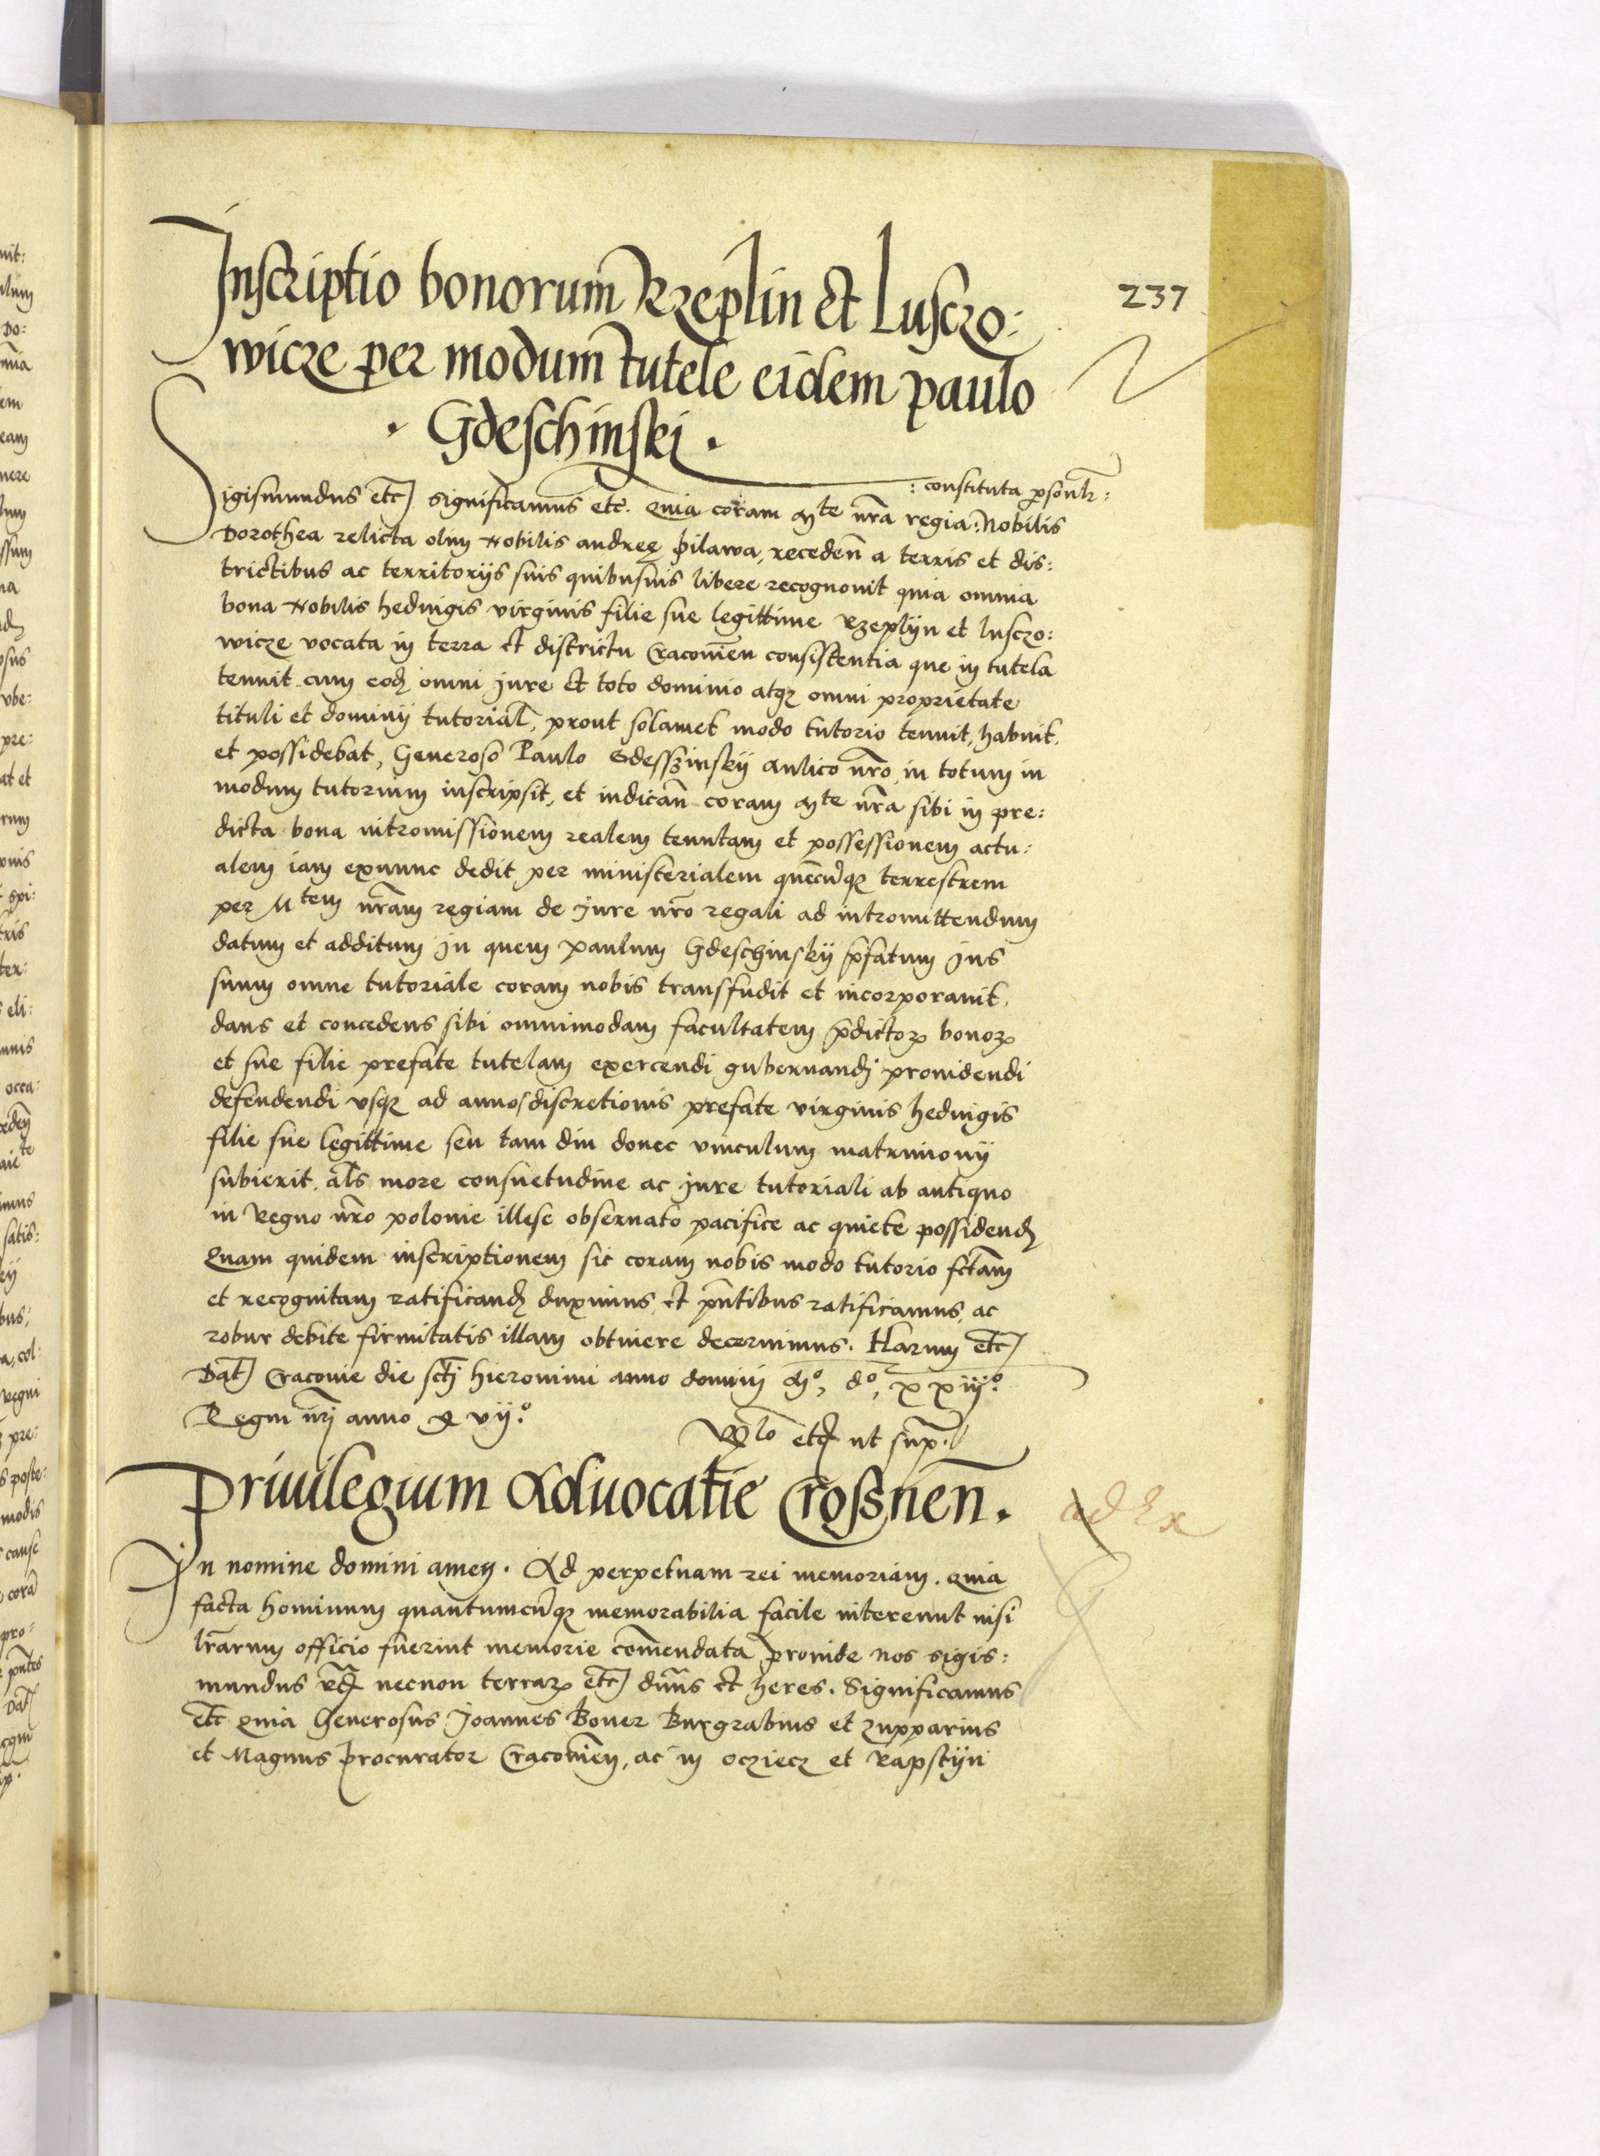 Inscriptio bonorum Rzeplin et Lusczo:
wicze per modum tutele eidem paulo
· Gdeschinski ·
237
: constituta psonlr :
Sigismundus etc significamus etc. Quia coram Mte nra regia : Nobilis
Dorothea relicta olim Nobilis andree pilawa, recedenn a terris et dis:
trictibus ac territoriis suis quibusuis libere recognouit quia omnia
bona Nobilis hedwigis virginis filie sue legittime Rzeplyn et lusczo:
wicze vocata in terra et districtu Cracouien consistentia que in tutela
tenuit cum eod omni jure et toto dominio atq omni proprietate
tituli et dominij tutorial, prout solamet modo tutorio tenuit, habuit,
et possidebat, Generoso Paulo Gdesszinskij Aulico nro, in totum in
modum tutorium inscripsit, et indican coram Mte nra sibi in pre:
dicta bona intromissionem realem tenutam et possessionem actu:
alem iam exnunc dedit per ministerialem quecuq terrestrem
per Mtem nram regiam de jure nro regali ad intromittendum
datum et additum In quem paulum Gdeschinskij pfatum jus
suum omne tutoriale coram nobis transfudit et incorporauit,
dans et concedens sibi omnimodam facultatem pdictor bonor
et sue filie prefate tutelam exercendi gubernandj prouidendi
defendendi vsq ad annos discretionis prefate virginis hedwigis
filie sue legittime seu tam diu donec vinculum matrimonij
subierit, als more consuetudine ac jure tutoriali ab antiquo
in Regno nro polonie illese obseruato pacifice ac quiete possidend
Quam quidem inscriptionem sic coram nobis modo tutorio fctam
et recognitam ratificand duximus, et pntibus ratificamus, ac
robur debite firmitatis illam obtinere decernimus. Harum etc
Dat Cracouie die sctj Hieronimi anno domini Mo, do, xxiijo.
Regni nrj anno xvijo.
etc ut sup.
Priuilegium Aduocatie Crossnen.
ad Ex
In nomine domini amen. Ad perpetuam rei memoriam. Quia
facta hominum quantumcuq memorabilia facile intereunt nisi
lrarum officio fuerint memorie comendata, prouide nos sigis:
mundus etc necnon terrar etc dnns et heres. Significamus
etc Quia Generosus Joannes Boner Burgrabius et zupparius
et Magnus procurator Cracouien, ac in ocziecz et Rapstyn